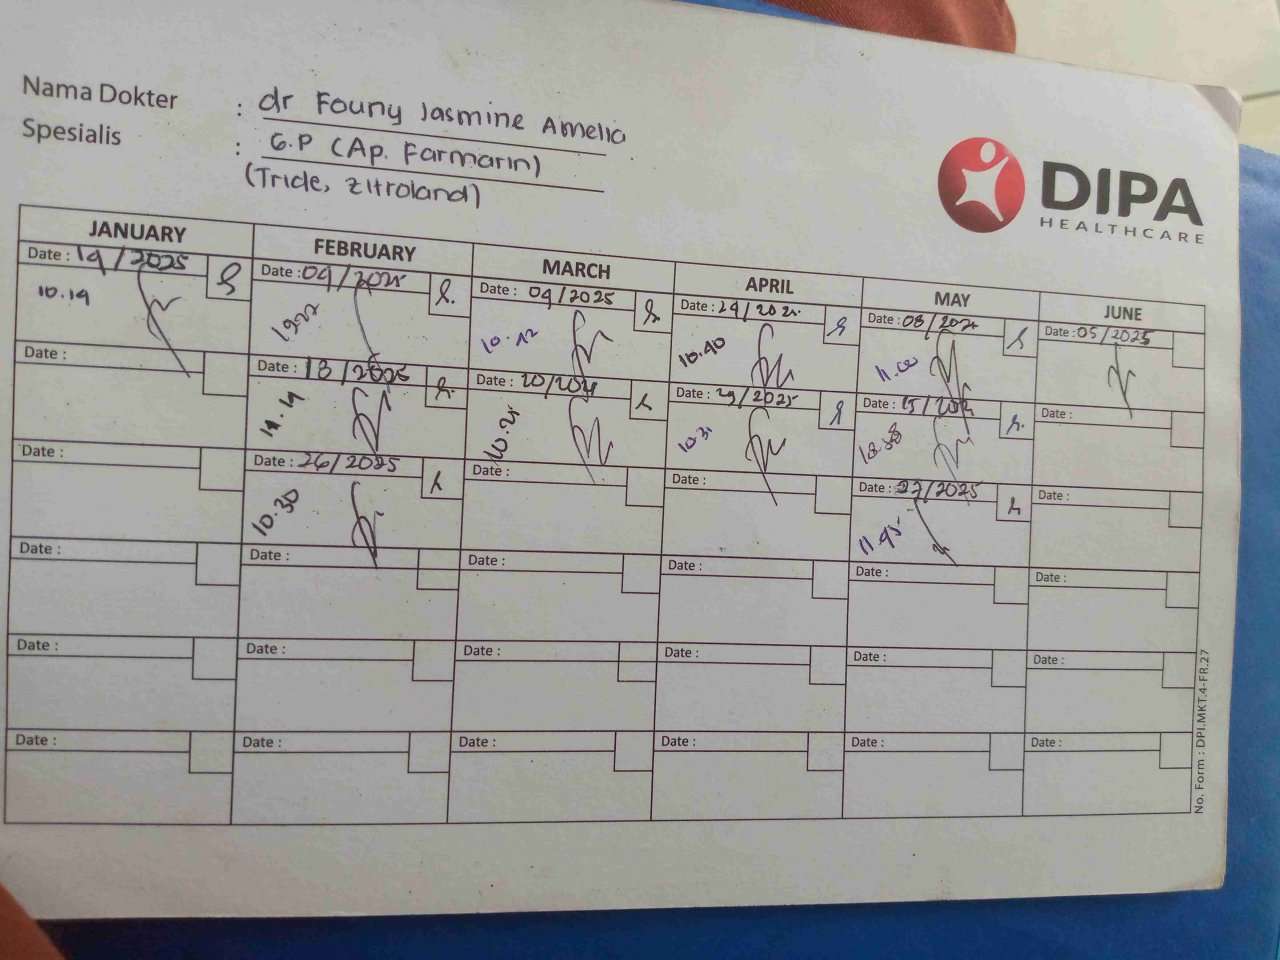 Nama Dokter : dr Founy Jasmine Amelia
Spesialis : G.P (Ap. Farmarin)
(Tride, Zitroland)
DIPA
HEALTHCARE
JANUARY FEBRUARY MARCH APRIL MAY JUNE
Date : 14/2025 Date : 04/2025 Date : 04/2025 Date : 24/202 Date : 08/202 Date : 05/2025
10.14 10.12 10.40 11.00
Date : Date : 18/2025 Date : 20/202 Date : 29/2025 Date : 15/202 Date :
11.14 10.21 10.31
Date : Date : 26/2025 Date : Date : Date : 27/2025 Date :
10.30 11.45
Date : Date : Date : Date : Date : Date :
Date : Date : Date : Date : Date : Date :
Date : Date : Date : Date : Date : Date :
No. Form : DPI.MKT.4-FR.27